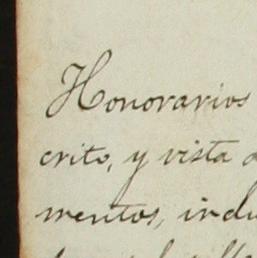 Honorarios
crito, y vista
mentos, inclu